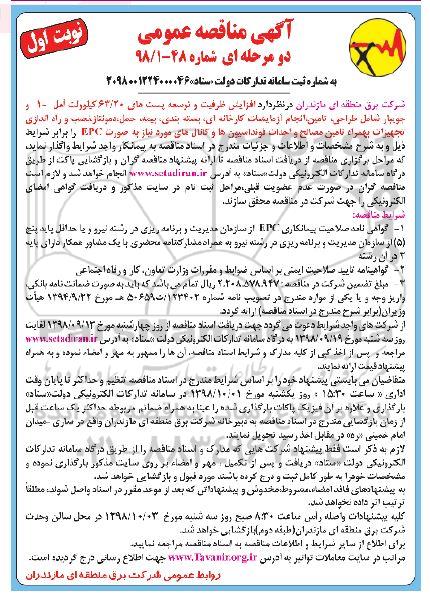 نوبت اول
آگهی مناقصه عمومی
دو مرحله ای شماره ۴۸-۹۸/۱
به شماره ثبت سامانه تدارکات دولت «ستاد» ۲۰۹۸۰۰۱۲۲۴۰۰۰۰۴۶
شرکت برق منطقه ای مازندران درنظردارد افزایش ظرفیت و توسعه پست های ۶۳/۲۰ کیلوولت آمل ۱- و
جویبار شامل طراحی، تامین،انجام آزمایشات کارخانه ای، بسته بندی، بیمه، حمل،دمونتاژ،نصب و راه اندازی
تجهیزات بهمراه تامین مصالح و احداث فونداسیون ها و کانال های مورد نیاز به صورت EPC را برابر شرایط
ذیل و به شرح مشخصات و اطلاعات و جزئیات مندرج در اسناد مناقصه به پیمانکار واجد شرایط واگذار نماید.
که مراحل برگزاری مناقصه از دریافت اسناد مناقصه تا ارائه پیشنهاد مناقصه گران و بازگشایی پاکت از طریق
درگاه سامانه تدارکات الکترونیکی دولت«ستاد» به آدرس www.setadiran.ir انجام خواهد شد و لازم است
مناقصه گران در صورت عدم عضویت قبلی،مراحل ثبت نام در سایت مذکور و دریافت گواهی امضای
الکترونیکی را جهت شرکت در مناقصه محقق سازند.
شرایط مناقصه:
۱- گواهی نامه صلاحیت پیمانکاری EPC از سازمان مدیریت و برنامه ریزی در رشته نیرو و یا حداقل پایه پنج
(۵)از سازمان مدیریت و برنامه ریزی در رشته نیرو به همراه مشارکتنامه محضری با یک مشاور همکار دارای پایه
۳ در آن رشته
۲- گواهینامه تایید صلاحیت ایمنی بر اساس ضوابط و مقررات وزارت تعاون، کار و رفاه اجتماعی
۳- مبلغ تضمین شرکت در مناقصه: ۲.۲۰۸.۵۷۸.۹۴۷ ریال تمام می باشد که باید به صورت ضمانت نامه بانکی
واریز وجه و یا یکی از موارد مندرج در تصویب نامه شماره ۱۲۳۴۰۲/ت۵۰۶۵۹ هـ مورخ ۱۳۹۴/۹/۲۲ هیأت
وزیران(برابر شرح مندرج در اسناد مناقصه) ارائه گردد.
از شرکت های واجد شرایط دعوت می گردد جهت دریافت اسناد مناقصه از روز چهارشنبه مورخ ۱۳۹۸/۰۹/۱۳ لغایت
روز سه شنبه مورخ ۱۳۹۸/۰۹/۱۹ به درگاه سامانه تدارکات الکترونیکی دولت «ستاد» به آدرس www.setadiran.ir
مراجعه و پس از اخذ کپی از کلیه مدارک و شرایط اسناد مناقصه، آن ها را ممهور به مهر و امضاء نموده و به همراه
پیشنهاد قیمت ارائه نمایند.
متقاضیان می بایستی پیشنهاد خود را بر اساس شرایط مندرج در اسناد مناقصه، تنظیم و حداکثر تا پایان وقت
اداری « ساعت ۱۵:۳۰ » روز یکشنبه مورخ ۱۳۹۸/۱۰/۰۱ در سامانه تدارکات الکترونیکی دولت«ستاد»
بارگذاری و علاوه بر آن فیزیک پاکات بارگذاری شده را عیناً به همراه ضمانتی مربوطه حداکثر یک ساعت قبل
از زمان بازگشایی مندرج در اسناد مناقصه به دبیرخانه شرکت برق منطقه ای مازندران واقع در ساری -میدان
امام خمینی (ره) در مقابل اخذ رسید تحویل نمایند.
لازم به ذکر است فقط پیشنهاد شرکت هایی که مدارک و اسناد مناقصه را از طریق درگاه سامانه تدارکات
الکترونیکی دولت «ستاد» دریافت و پس از تکمیل ، مهر و امضاء بر روی سایت مذکور بارگذاری نموده و
مشخصات خود را به طور کامل ثبت و درج کرده باشند مورد قبول و بازگشایی خواهد شد.
به پیشنهادهای فاقد امضاء،مشروط،مخدوش و پیشنهاداتی که بعد از موعد مقرر در اسناد واصل شوند، مطلقاً
ترتیب اثر داده نخواهد شد.
کلیه پیشنهادات واصله راس ساعت ۸:۳۰ صبح روز سه شنبه مورخ ۱۳۹۸/۱۰/۰۳ در محل سالن وحدت
شرکت برق منطقه ای مازندران(طبقه دوم)بازگشایی خواهد شد.
برای اطلاع از سایر شرایط و اطلاعات به اسناد مناقصه مراجعه نمایید.
مراتب در سایت معاملات توانیر به آدرس www.Tavanir.org.ir جهت اطلاع رسانی درج گردیده است.
روابط عمومی شرکت برق منطقه ای مازندران